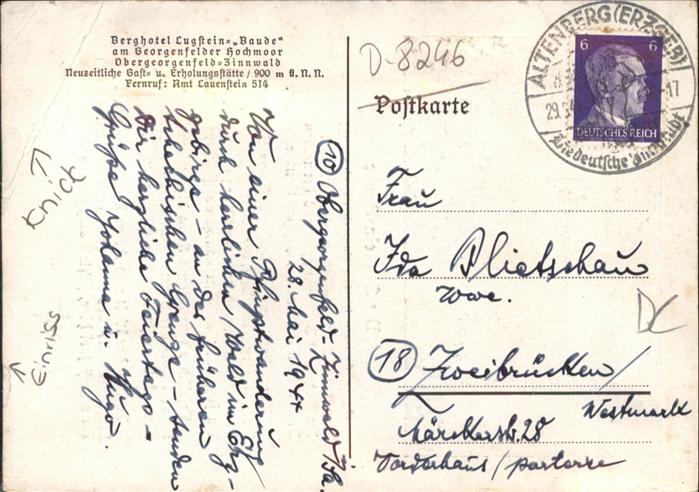 Berghotel Lugstein-„Baude“
am Georgenfelder Hochmoor
Obergeorgenfeld-Zinnwald
Neuzeitliche Gast- u. Erholungsstätte / 900 m ü. N. N.
Fernruf: Amt Lauenstein 514
D-8246
Postkarte
ALTENBERG (ERZGEB)
29.5.
-17
6 6
DEUTSCHES REICH
(10) Obergeorgenfeld-Zinnwald/Sa.
28. Mai 1944
Von einer Pfingstwanderung
durch herrlichen Wald im Erz-
gebirge - an der früheren
tschechischen Grenze - senden
Dir herzliche Feiertags-
Grüße Johanna u. Hugo.
Knick
Einriss
Frau
Ida Plietschau
Wwe.
DC
(18) Zweibrücken/
Westmark
28
Vorderhaus / parterre